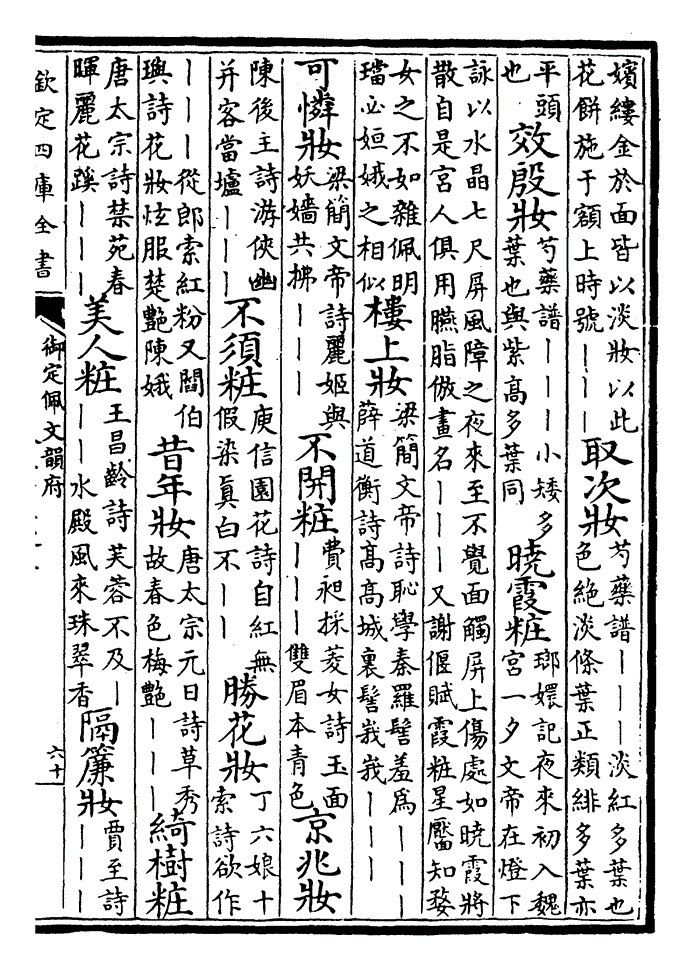 嬪縷金於面皆以淡妝以此
花餅施于額上時號｜｜｜
取次妝
芍藥譜｜｜｜淡紅多葉也
色絕淡條葉正類緋多葉亦
平頭
也
效殷妝
芍藥譜｜｜｜小矮多
葉也與紫高多葉同
曉霞粧
瑯嬛記夜來初入魏
宮一夕文帝在燈下
詠以水晶七尺屏風障之夜來至不覺面觸屏上傷處如曉霞將
散自是宮人俱用臙脂倣畫名｜｜｜又謝偃賦霞粧星靨知婺
女之不如雜佩明
璫必姮娥之相似
樓上妝
梁簡文帝詩恥學秦羅髻羞為｜｜｜
薛道衡詩髙髙城裏髻峩峩｜｜｜
可憐妝
梁簡文帝詩麗姬與
妖嬙共拂｜｜｜
不開粧
費昶採菱女詩玉面
｜｜｜雙眉本青色
京兆妝
陳後主詩游俠幽
并客當壚｜｜｜
不須粧
庾信園花詩自紅無
假染真白不｜｜
勝花妝
丁六娘十
索詩欲作
｜｜｜從郎索紅粉又閻伯
璵詩花妝炫服楚艷陳娥
昔年妝
唐太宗元日詩草秀
故春色梅艷｜｜｜
綺樹粧
唐太宗詩禁苑春
暉麗花蹊｜｜｜
美人粧
王昌齡詩芙蓉不及｜
｜｜水殿風來珠翠香
隔簾妝
賈至詩
｜｜｜
欽定四庫全書
御定佩文韻府
六十